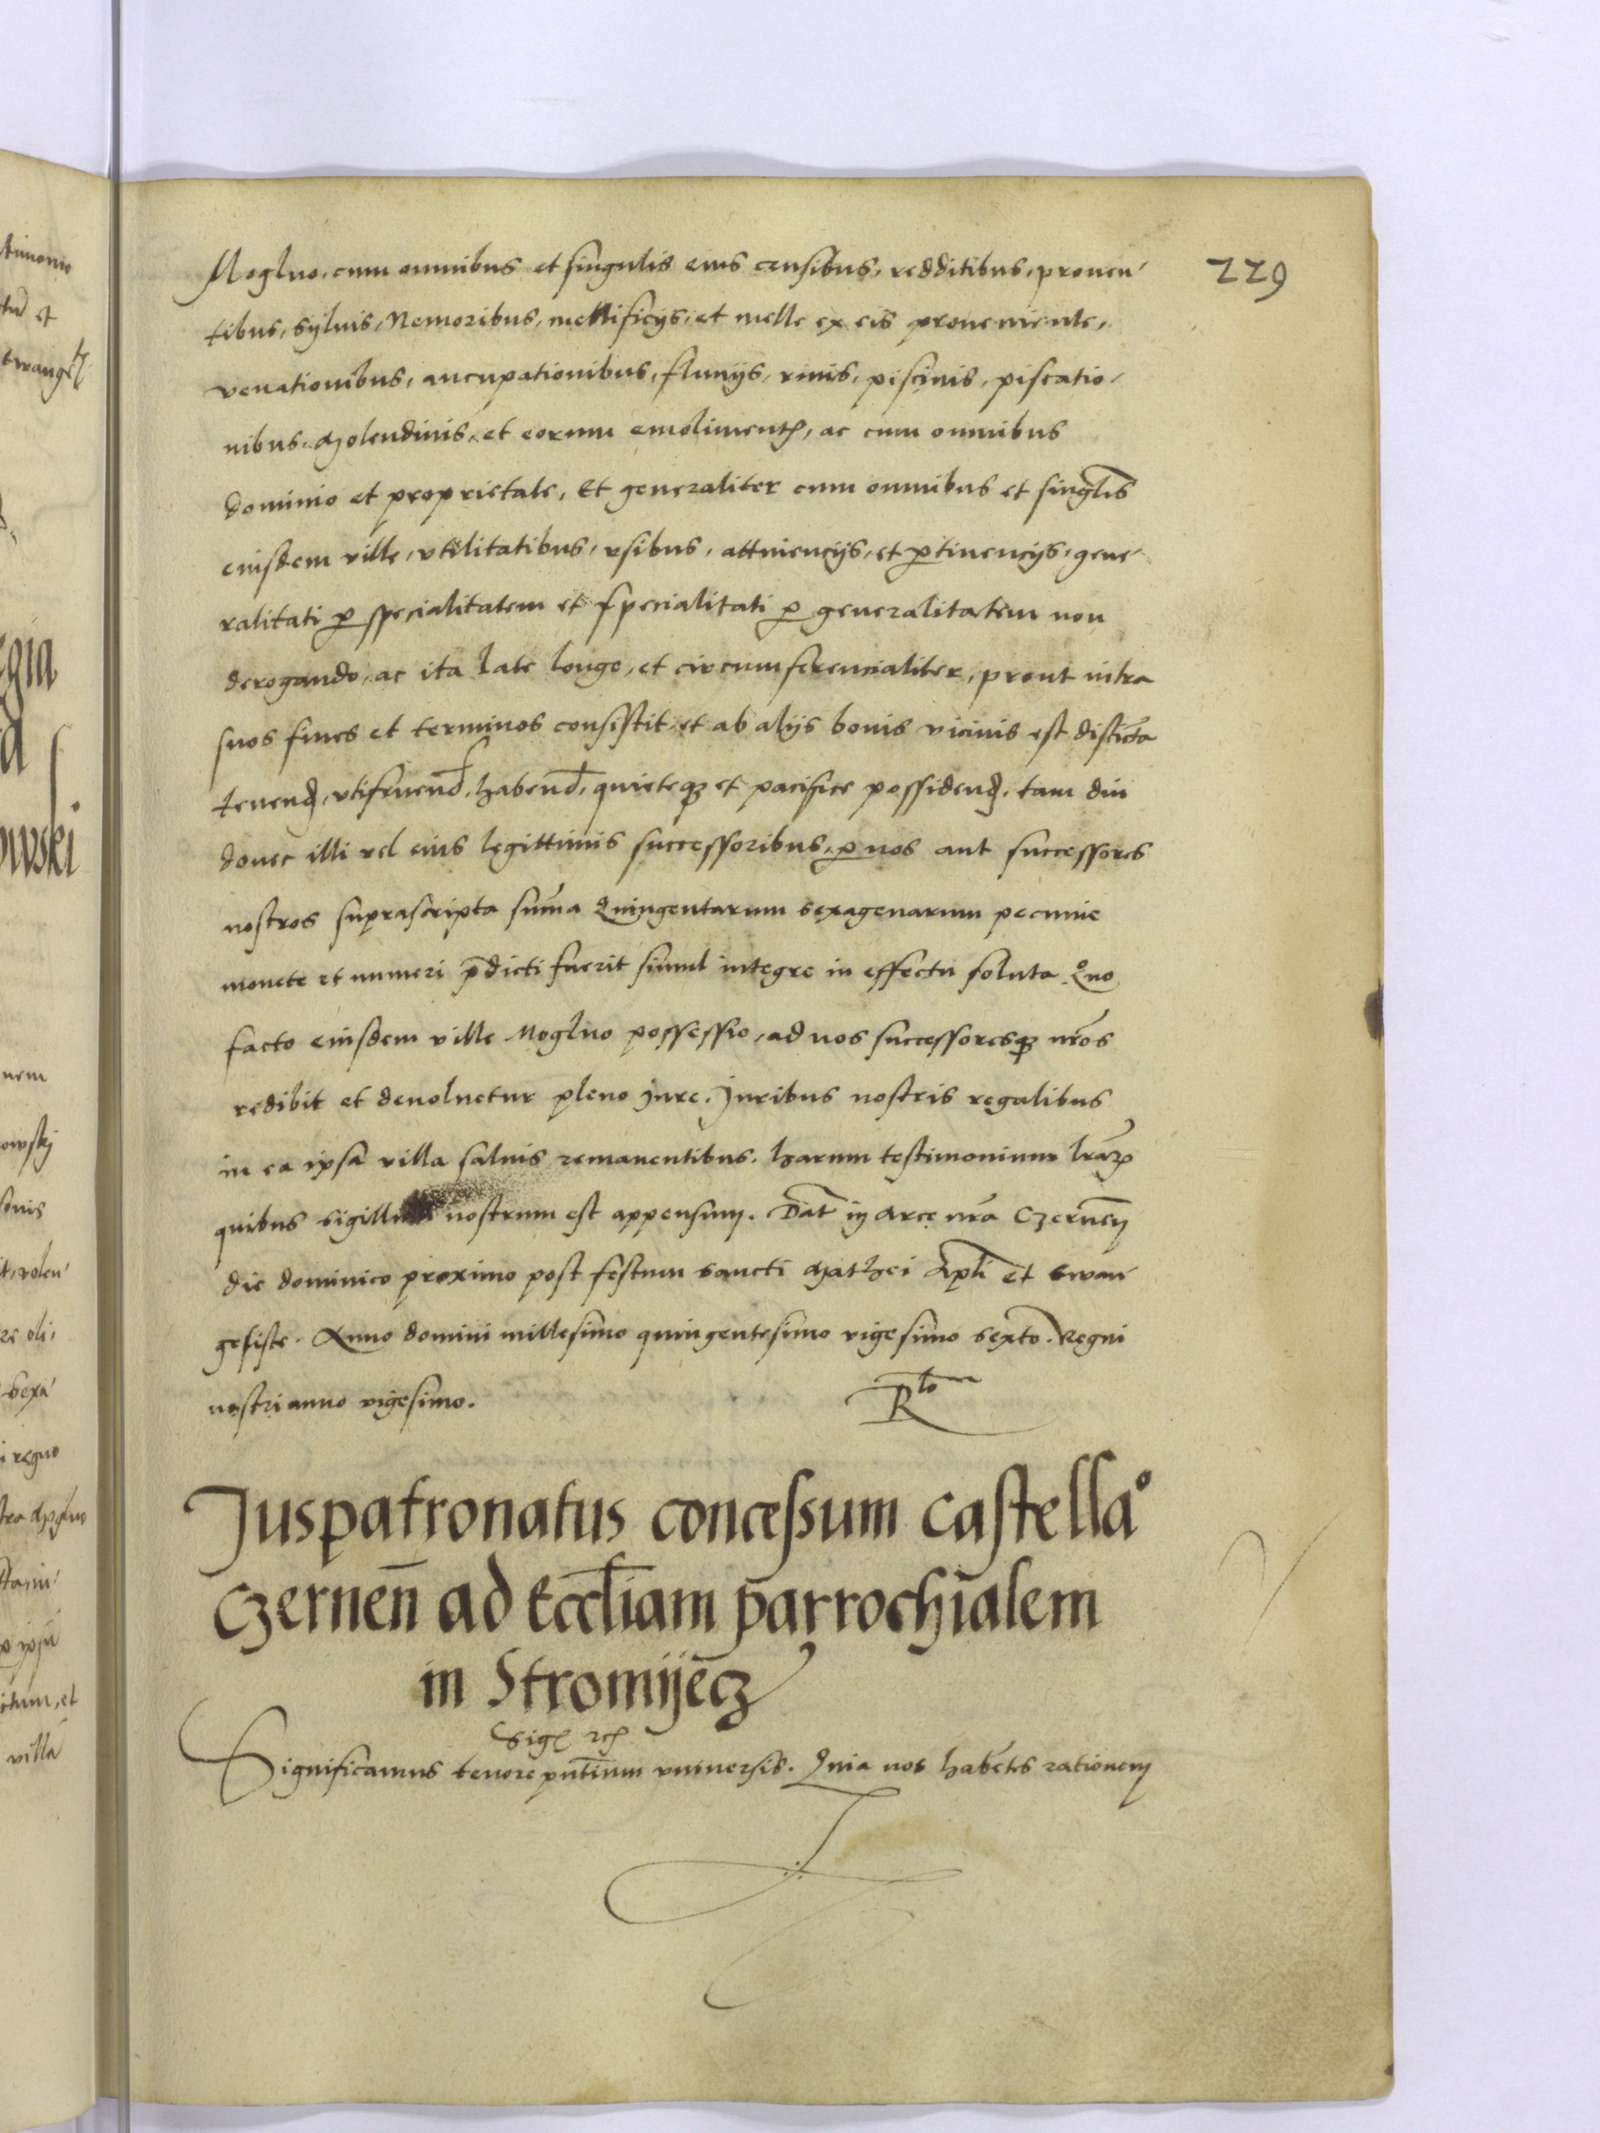 229
Moglno, cum omnibus et singulis eius censibus, redditibus, proven
tibus, sylvis, Nemoribus, mellificijs, et melle ex eis proveniente,
venationibus, aucupationibus, fluvijs, rivis, piscinis, piscatio
nibus, Molendinis, et eorum emoliment, ac cum omnibus
dominio et proprietate, Et generaliter cum omnibus et singlis
eiusdem ville, vtilitatibus, vsibus, attinencijs, et ptinencijs, gene
ralitati p specialitatem et specialitati p generalitatem non
derogando, ac ita late longe, et circumferencialiter, prout intra
suos fines et terminos consistit et ab alijs bonis vicinis est disticta
tenend, vtifruend, habend, quieteq et pacifice possidend, tam diu
donec illi vel eius legittimis successoribus, p nos aut successores
nostros suprascripta suma Quingentarum sexagenarum pecunie
monete et numeri pdicti fuerit simul integre in effectu soluta Quo
facto eiusdem ville Moglno possessio, ad nos successoresq nros
redibit et devolvetur pleno jure. Juribus nostris regalibus
in ea ipsa villa salvis remanentibus. harum testimonium lrarum
quibus sigillum nostrum est appensum. Dat in Arce nra Czernen
die dominico proximo post festum sancti Mathei Apli et Evan
geliste. Anno domini millesimo quingentesimo vigesimo sexto. Regni
nostri anno vigesimo. Rto
Juspatronatus concessum castellano
Czernen ad Eccliam parrochialem
in Stromijecz
Sig
Significamus tenore pntium vniversis. Quia nos habentes rationem